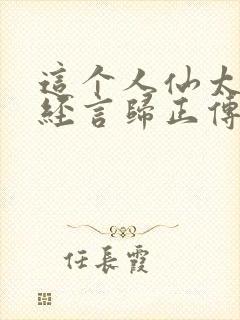 這个人仙太
經言歸正傳
任長霞